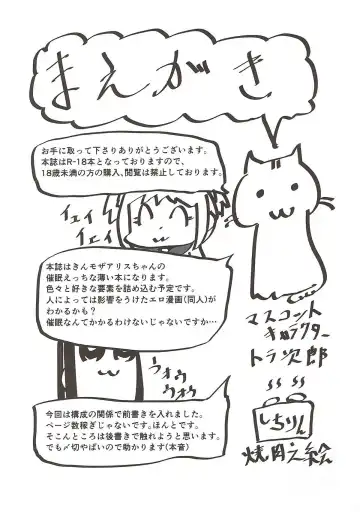 まえがき
お手に取って下さりありがとうございます。
本誌はR-18本となっておりますので、
18歳未満の方の購入、閲覧は禁止しております。
イェイ
イェイ
本誌はきんモザアリスちゃんの
催眠えっちな薄い本になります。
色々と好きな要素を詰め込む予定です。
人によっては影響をうけたエロ漫画(同人)が
わかるかも?
催眠なんてかかるわけないじゃないですか…
マスコット
キャラクター
トラ次郎
ウォウ
ウォウ
しちりん
今回は構成の関係で前書きを入れました。
ページ数稼ぎじゃないです。ほんとです。
そこんところは後書きで触れようと思います。
でも〆切やばいので助かります(本音)